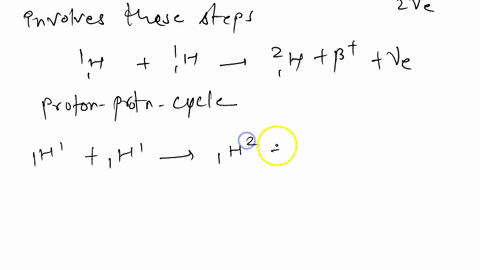 2νe
involves these steps
¹₁H + ¹₁H → ²₁H + β⁺ + νe
proton-protn-cycle
₁H¹ + ₁H¹ → ₁H² =